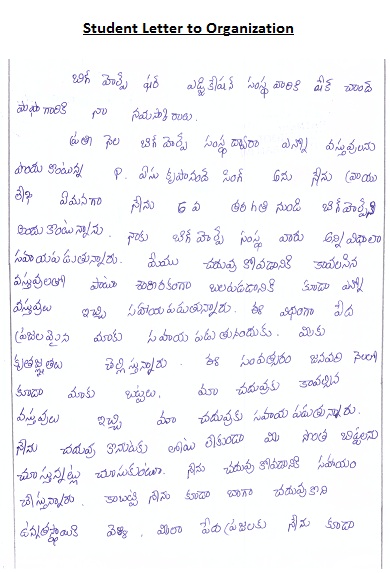 Student Letter to Organization
బిగ్ హెల్ప్ ఫర్ ఎడ్యుకేషన్ సంస్థ వారికి షేక్ చాంద్
పాషా గారికి నా నమస్కారాలు.
ప్రతి నెల బిగ్ హెల్ప్ సంస్థ ద్వారా ఎన్నో వస్తువులను
పొందు P. ఏసు కృపానంద్ సింగ్ అను నేను వ్రాయు
లేఖ ఏమనగా నేను 6 వ తరగతి నుండి బిగ్ హెల్ప్
నాకు బిగ్ హెల్ప్ సంస్థ వారు అన్ని విధాలా
సహాయపడుతున్నారు. మేము చదువుకోవడానికి కావలసిన
వస్తువులతో పాటు శారీరకంగా బలపడడానికి కూడా ఎన్నో
వస్తువులు ఇచ్చి సహాయపడుతున్నారు. ఈ విధంగా పేద
ప్రజలమైన మాకు సహాయపడుతునందుకు. మీకు
కృతజ్ఞతలు చెల్లిస్తున్నాను. ఈ సంవత్సరం జనవరి నెలలో
కూడా మాకు బట్టలు, మా చదువుకు కావల్సిన
వస్తువులు ఇచ్చి మా చదువుకు సహాయపడుతున్నారు.
నేను చదువు కొనుటకు లోటు లేకుండా మీ సొంత బిడ్డలను
చూస్తున్నట్లు చూసుకుంటూ. నేను చదువుకోవడానికి సహాయం
చేస్తున్నారు. కాబట్టి నేను కూడా బాగా చదువుకొని
ఉన్నతస్థాయికి వెళ్ళి, మీలా పేద ప్రజలకు నేను కూడా